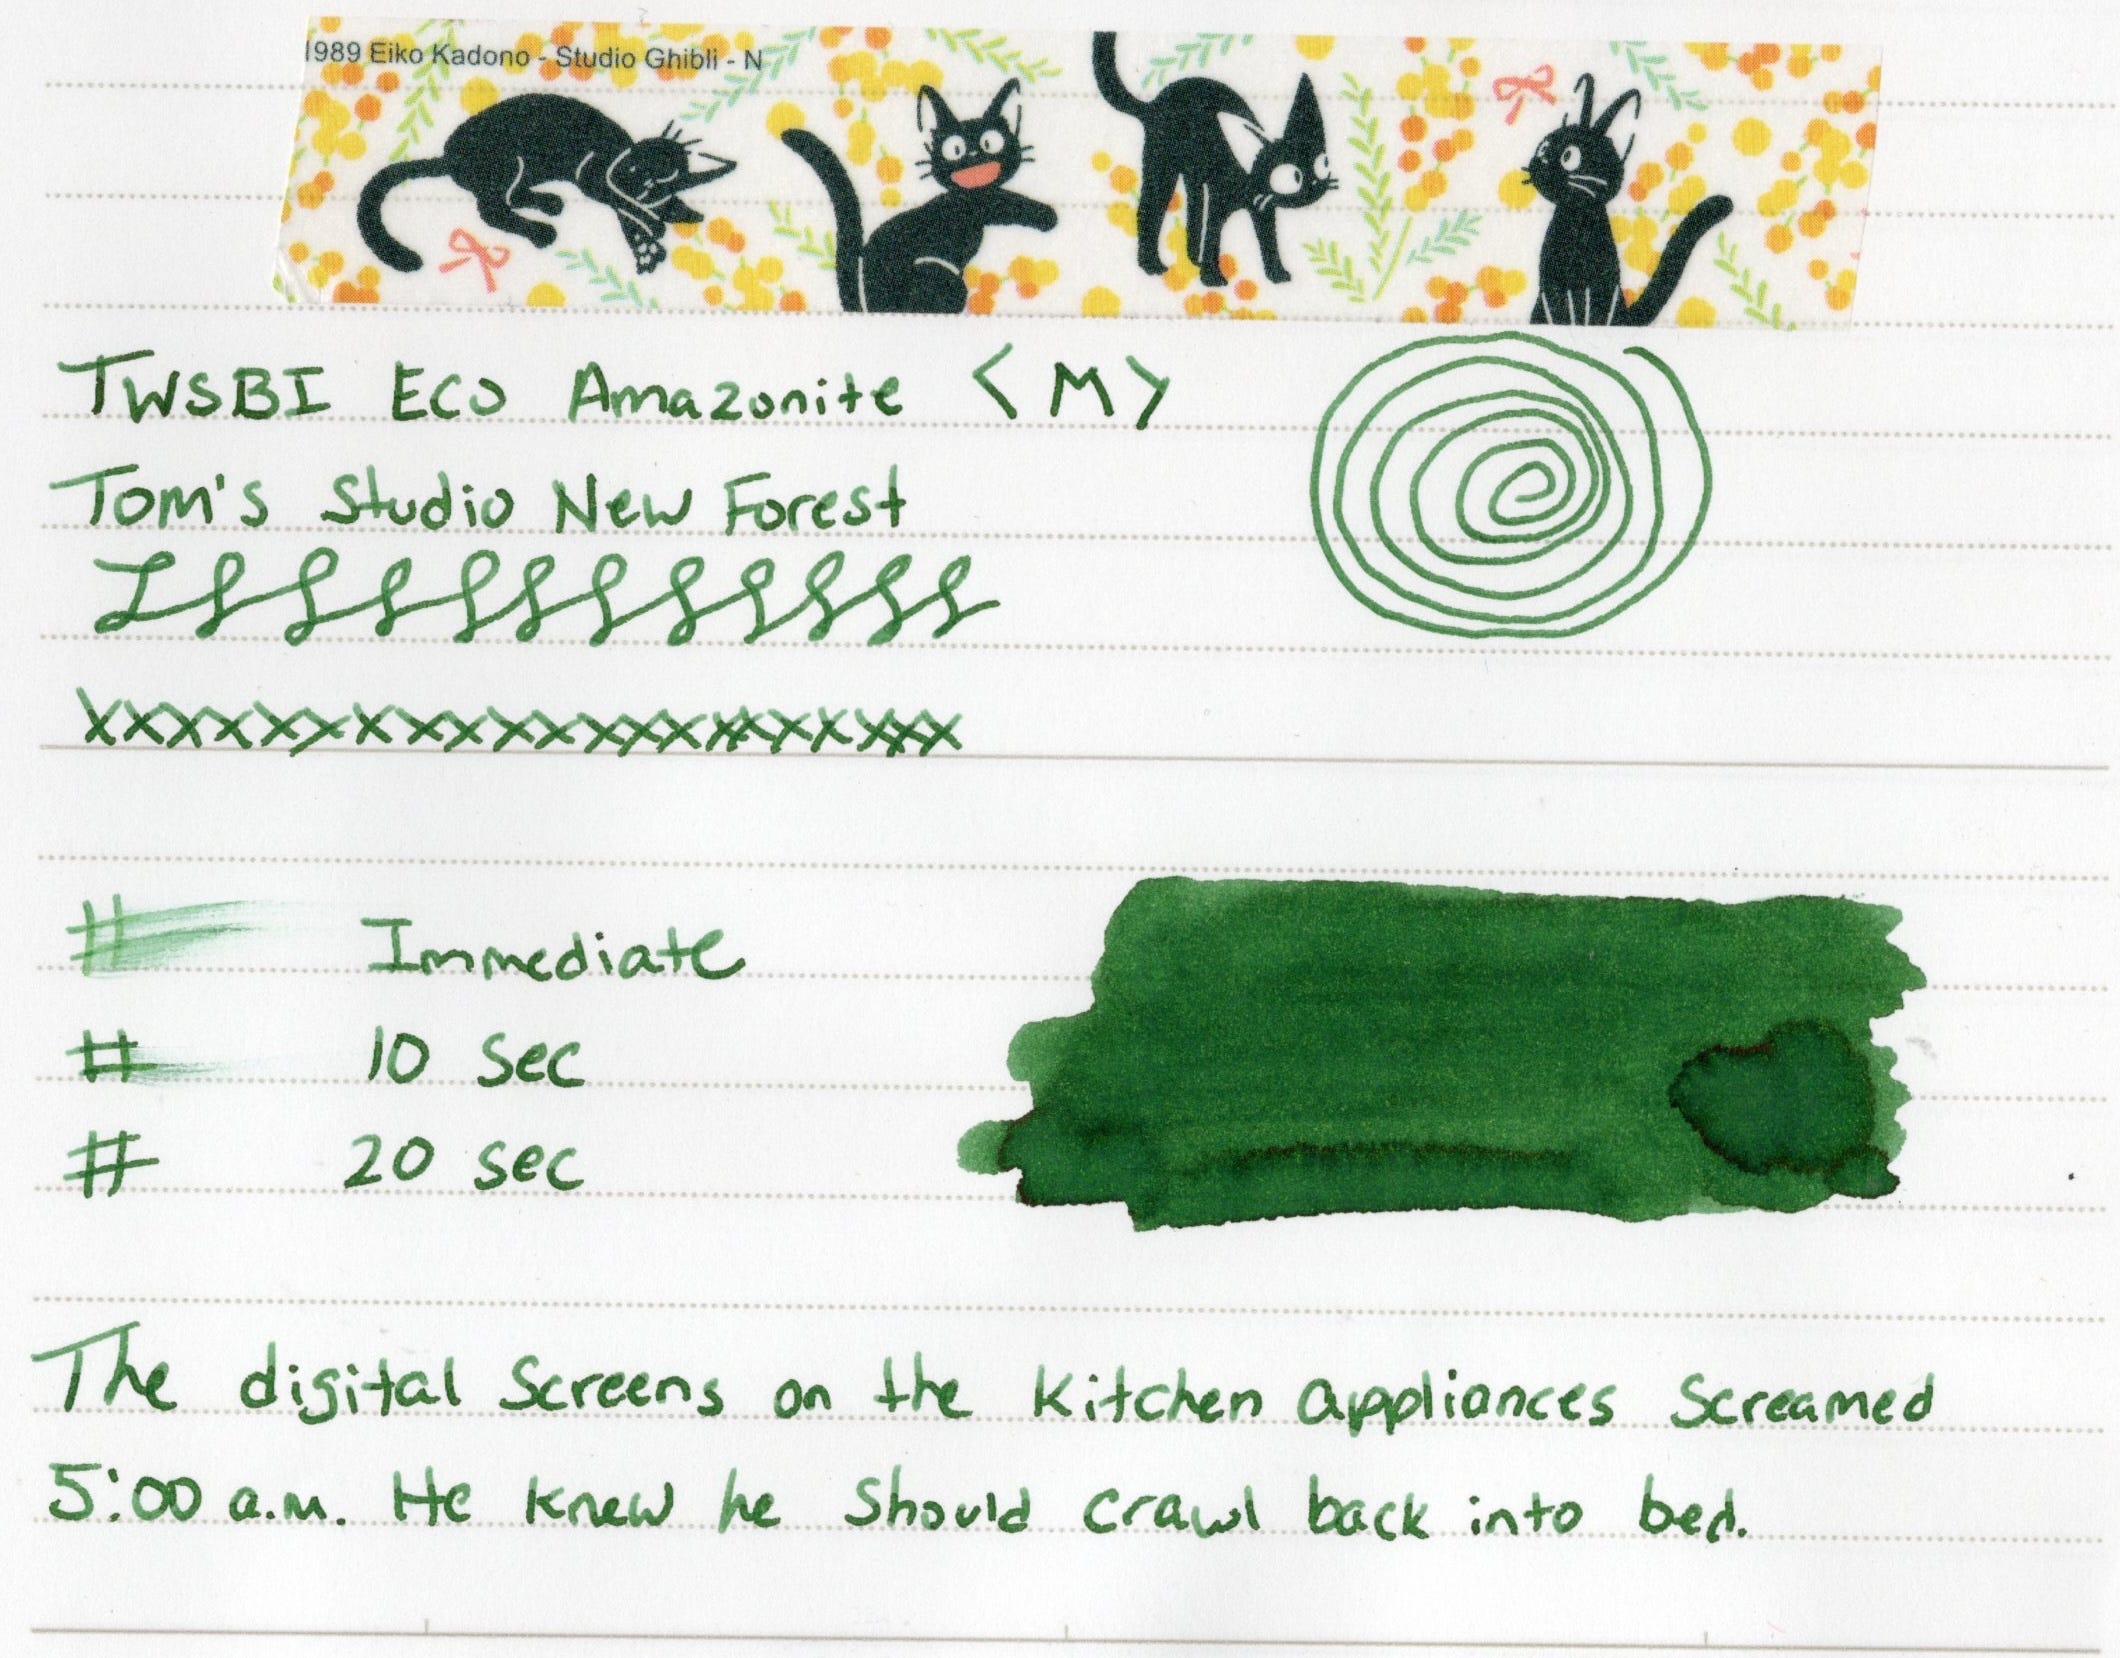 1989 Eiko Kadono - Studio Ghibli - N
TWSBI ECO Amazonite <M>
Tom's Studio New Forest
xxxxxxxxxxxxxxxxxxxxx
# Immediate
# 10 sec
# 20 sec
The digital Screens on the Kitchen appliances Screamed
5:00 a.m. He knew he should crawl back into bed.